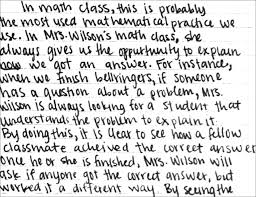 In math class, this is probably
the most used mathematical practice we
use. In Mrs. Wilson's math class, she
always gives us the oppurtunity to explain
how we got an answer. For instance,
when we finish bellringers, if someone
has a question about a problem, Mrs.
Wilson is always looking for a student that
understands the problem to explain it.
By doing this, it is clear to see how a fellow
classmate acheived the correct answer
once he or she is finished, Mrs. Wilson will
ask if anyone got the correct answer, but
worked it a different way. By seeing the